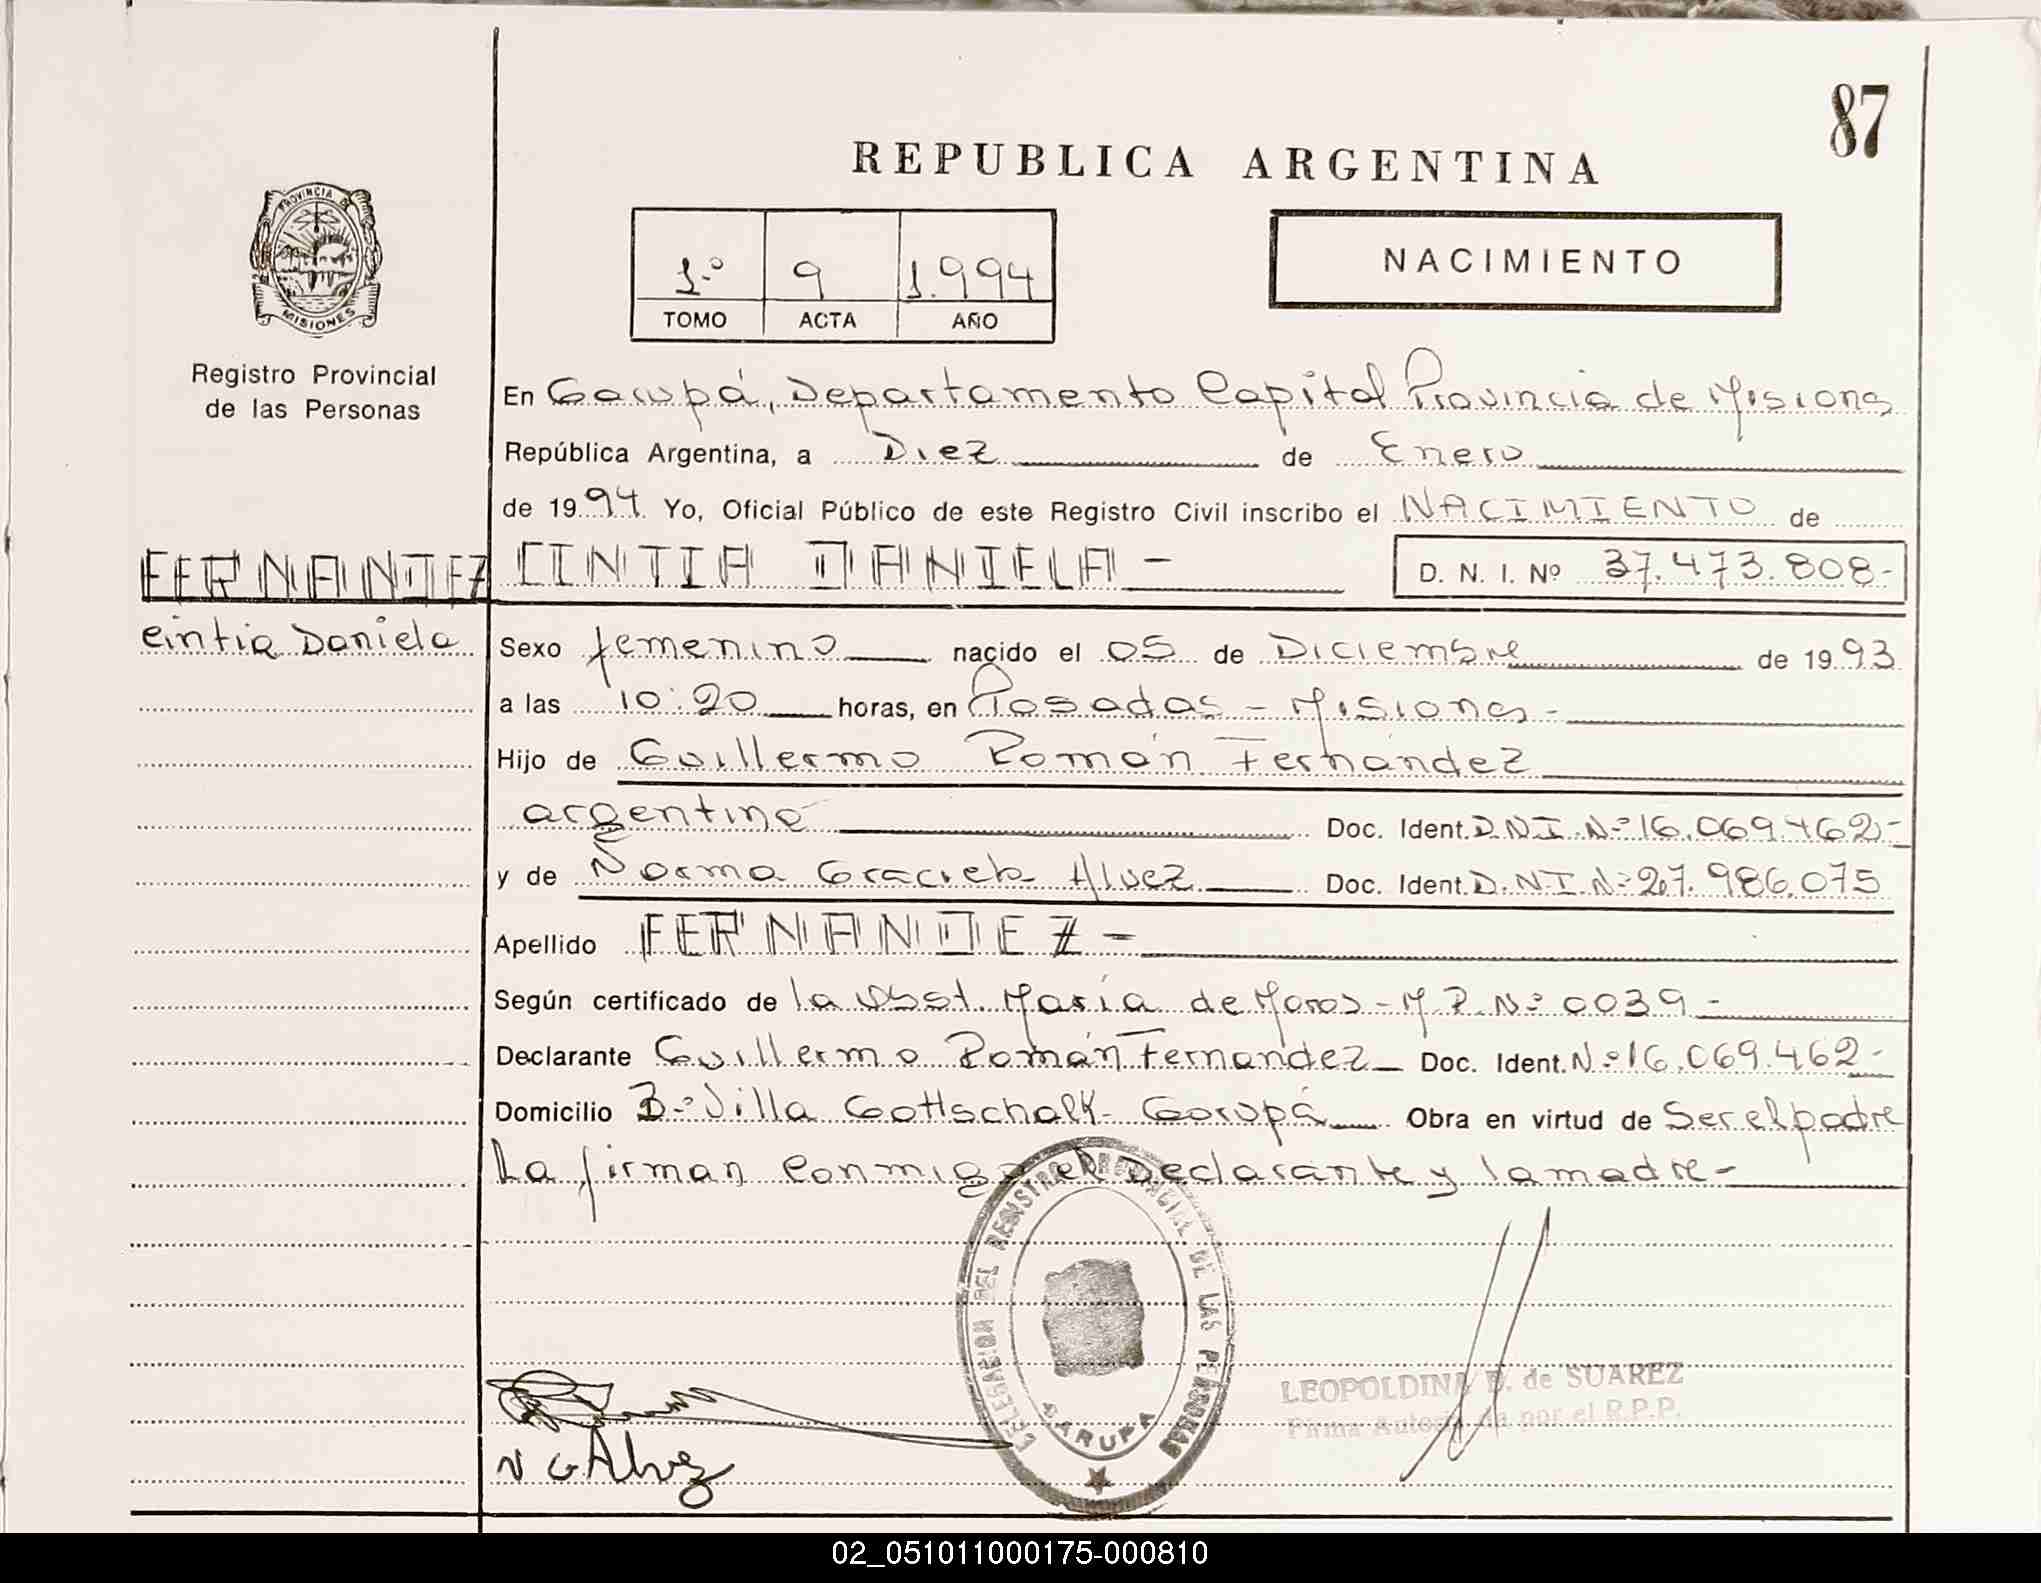 87
REPUBLICA ARGENTINA
PROVINCIA DE
MISIONES
1.º 9 1.994
TOMO ACTA AÑO
NACIMIENTO
Registro Provincial
de las Personas
En Garupá, Departamento Capital Provincia de Misiones
República Argentina, a Diez de Enero
de 1994 Yo, Oficial Público de este Registro Civil inscribo el NACIMIENTO de
FERNANDEZ CINTIA DANIELA -
D. N. I. Nº 37.473.808-
Cintia Daniela
Sexo femenino nacido el 05 de Diciembre de 1993
a las 10:20 horas, en Posadas - Misiones -
Hijo de Guillermo Román Fernández
argentino Doc. Ident. D.N.I.Nº 16.069.462-
y de Norma Graciela Alvez Doc. Ident. D.N.I.Nº 27.986.075
Apellido FERNANDEZ -
Según certificado de la Obst. María de Moros - M.P.Nº 0039 -
Declarante Guillermo Román Fernandez Doc. Ident. Nº 16.069.462-
Domicilio Bº Villa Gottschalk - Garupá Obra en virtud de Ser el padre
La firman conmigo el Declarante y la madre -
DELEGACION DEL REGISTRO PROVINCIAL DE LAS PERSONAS
GARUPA
LEOPOLDINA D. de SUAREZ
Firma Autorizada por el R.P.P.
N G Alvez
02_051011000175-000810